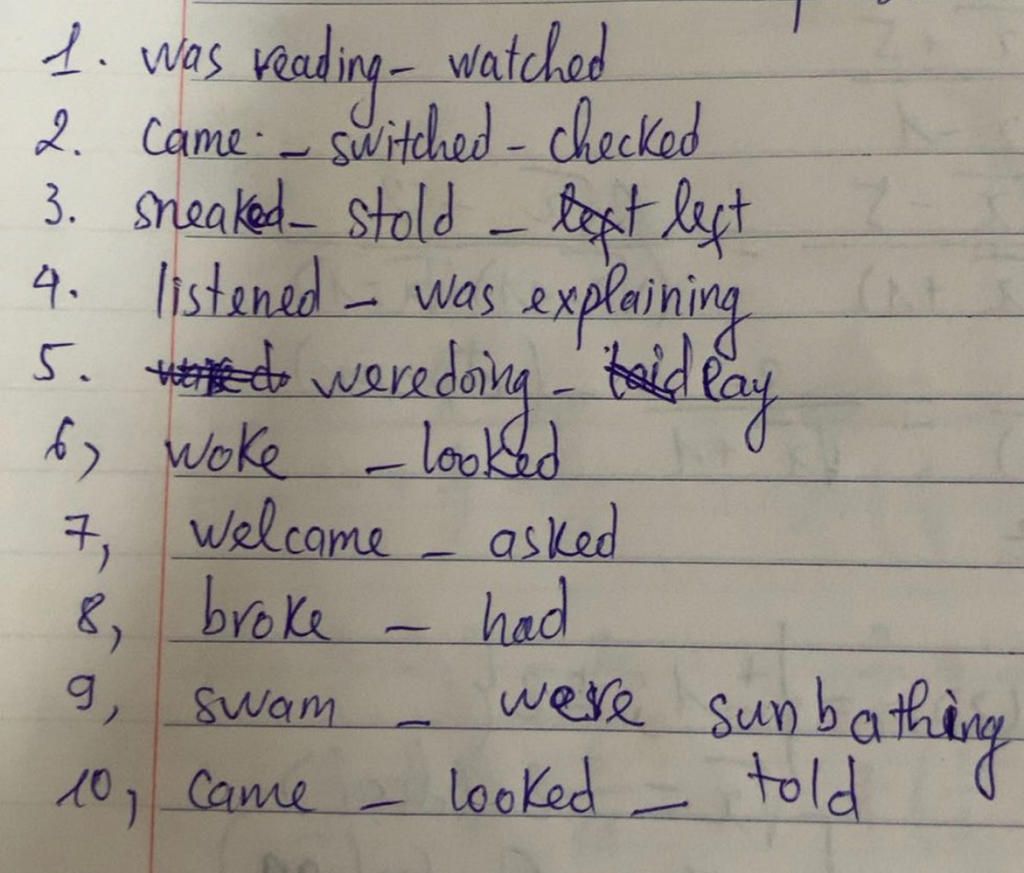 1. was reading - watched
2. came - switched - checked
3. sneaked - stold - left
4. listened - was explaining
5. were doing - lay
6) woke - looked
7, welcame - asked
8, broke - had
9, swam - were sunbathing
10, came - looked - told